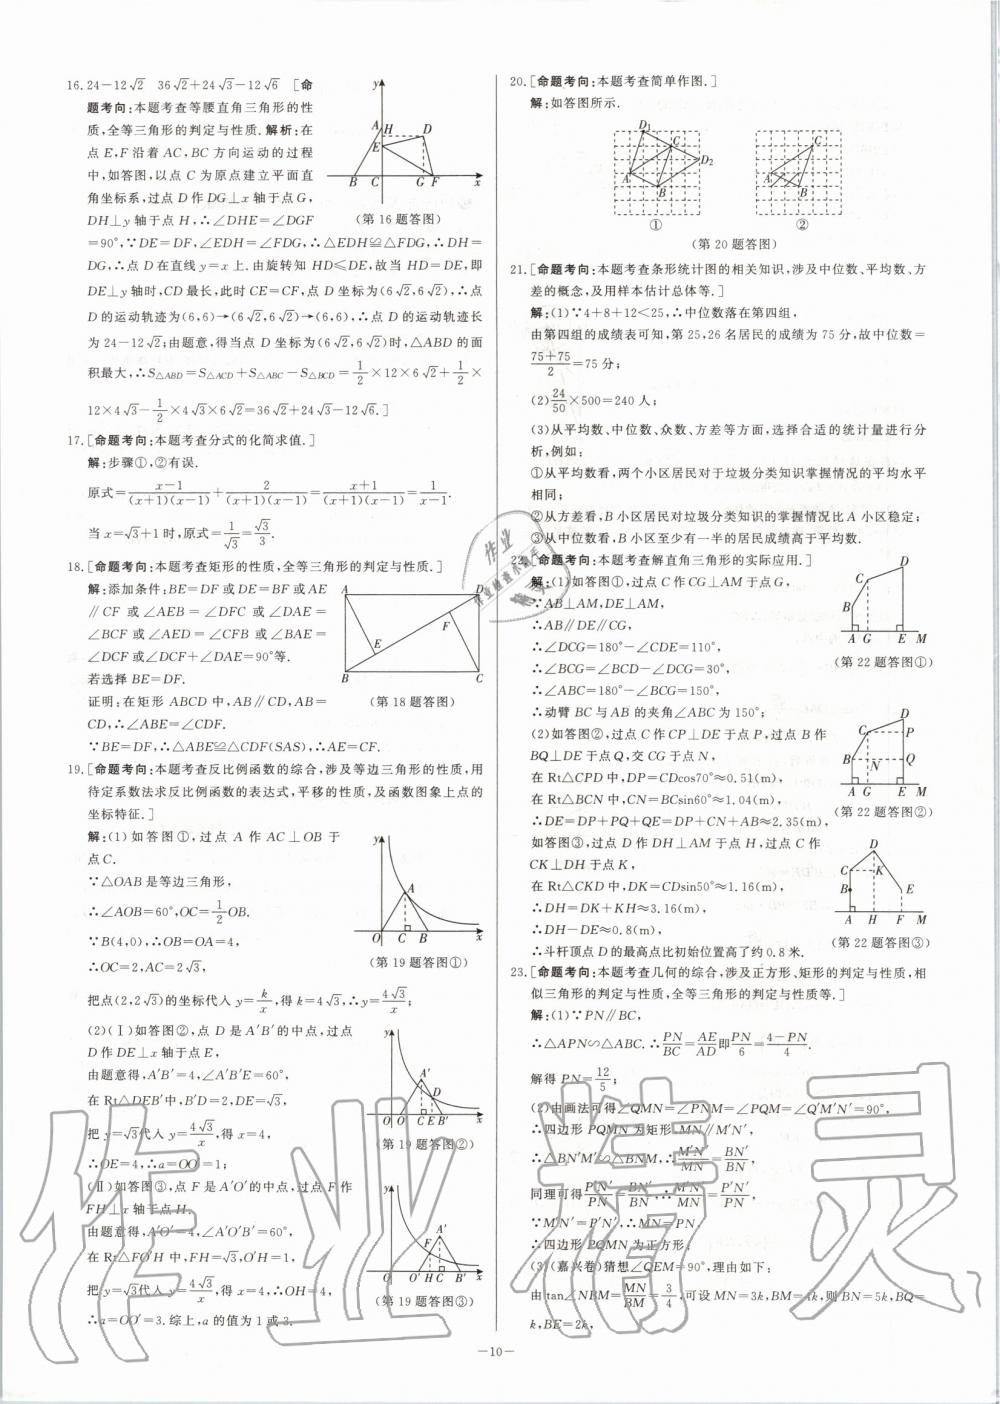 16. 24−12√2　36√2+24√3−12√6　[命
题考向:本题考查等腰直角三角形的性
质,全等三角形的判定与性质.解析:在
点 E,F 沿着 AC,BC 方向运动的过程
中,如答图,以点 C 为原点建立平面直
角坐标系,过点 D 作 DG⊥x 轴于点 G,
DH⊥y 轴于点 H,∴∠DHE=∠DGF
=90°,∵DE=DF,∠EDH=∠FDG,∴△EDH≌△FDG,∴DH=
DG,∴点 D 在直线 y=x 上.由旋转知 HD≤DE,故当 HD=DE,即
DE⊥y 轴时,CD 最长,此时 CE=CF,点 D 坐标为(6√2,6√2),∴点
D 的运动轨迹为(6,6)→(6√2,6√2)→(6,6),∴点 D 的运动路径长
为 24−12√2;由题意,得当点 D 坐标为(6√2,6√2)时,△ABD 的面
积最大,∴S△ABD=S△ACD+S△ABC−S△BCD=1/2×12×6√2+1/2×
12×4√3−1/2×4√3×6√2=36√2+24√3−12√6.]
y
A
H
D
E
B
C
G
F
x
(第 16 题答图)
17. [命题考向:本题考查分式的化简求值.]
解:步骤①,②有误.
原式=(x−1)/((x+1)(x−1))+2/((x+1)(x−1))=(x+1)/((x+1)(x−1))=1/(x−1).
当 x=√3+1 时,原式=1/√3=√3/3.
18. [命题考向:本题考查矩形的性质,全等三角形的判定与性质.]
解:添加条件:BE=DF 或 DE=BF 或 AE
∥CF 或∠AEB=∠DFC 或∠DAE=
∠BCF 或∠AED=∠CFB 或∠BAE=
∠DCF 或∠DCF+∠DAE=90°等.
若选择 BE=DF.
证明:在矩形 ABCD 中,AB∥CD,AB=
CD,∴∠ABE=∠CDF.
∵BE=DF,∴△ABE≌△CDF(SAS),∴AE=CF.
A
D
F
E
B
C
(第 18 题答图)
19. [命题考向:本题考查反比例函数的综合,涉及等边三角形的性质,用
待定系数法求反比例函数的表达式,平移的性质,及函数图象上点的
坐标特征.]
解:(1)如答图①,过点 A 作 AC⊥OB 于
点 C.
∵△OAB 是等边三角形,
∴∠AOB=60°,OC=1/2OB.
∵B(4,0),∴OB=OA=4,
∴OC=2,AC=2√3,
把点(2,2√3)的坐标代入 y=k/x,得 k=4√3,∴y=4√3/x;
y
A
O
C
B
x
(第 19 题答图①)
(2)(Ⅰ)如答图②,点 D 是 A′B′的中点,过点
D 作 DE⊥x 轴于点 E,
由题意得,A′B′=4,∠A′B′E=60°,
在 Rt△DEB′中,B′D=2,DE=√3,
把 y=√3代入 y=4√3/x,得 x=4,
∴OE=4,∴a=OO′=1;
y
A′
D
O
O′
C
E
B′
x
(第 19 题答图②)
(Ⅱ)如答图③,点 F 是 A′O′的中点,过点 F 作
FH⊥x 轴于点 H.
由题意得,A′O′=4,∠A′O′B′=60°,
在 Rt△FO′H 中,FH=√3,O′H=1,
把 y=√3代入 y=4√3/x,得 x=4,∴OH=4,
∴a=OO′=3.综上,a 的值为 1 或 3.
y
A′
F
O
O′
H
C
B′
x
(第 19 题答图③)
20. [命题考向:本题考查简单作图.]
解:如答图所示.
D1
C
D2
A
B
①
C
A
B
②
(第 20 题答图)
21. [命题考向:本题考查条形统计图的相关知识,涉及中位数、平均数、方
差的概念,及用样本估计总体等.]
解:(1)∵4+8+12<25,∴中位数落在第四组,
由第四组的成绩表可知,第 25,26 名居民的成绩为 75 分,故中位数=
(75+75)/2=75 分;
(2)24/50×500=240 人;
(3)从平均数、中位数、众数、方差等方面,选择合适的统计量进行分
析,例如:
①从平均数看,两个小区居民对于垃圾分类知识掌握情况的平均水平
相同;
②从方差看,B 小区居民对垃圾分类知识的掌握情况比 A 小区稳定;
③从中位数看,B 小区至少有一半的居民成绩高于平均数.
22. [命题考向:本题考查解直角三角形的实际应用.]
解:(1)如答图①,过点 C 作 CG⊥AM 于点 G,
∵AB⊥AM,DE⊥AM,
∴AB∥DE∥CG,
∴∠DCG=180°−∠CDE=110°,
∴∠BCG=∠BCD−∠DCG=30°,
∴∠ABC=180°−∠BCG=150°,
∴动臂 BC 与 AB 的夹角∠ABC 为 150°;
D
C
B
A G E M
(第 22 题答图①)
(2)如答图②,过点 C 作 CP⊥DE 于点 P,过点 B 作
BQ⊥DE 于点 Q,交 CG 于点 N,
在 Rt△CPD 中,DP=CDcos70°≈0.51(m),
在 Rt△BCN 中,CN=BCsin60°≈1.04(m),
∴DE=DP+PQ+QE=DP+CN+AB≈2.35(m),
D
C
P
B
N
Q
A G E M
(第 22 题答图②)
如答图③,过点 D 作 DH⊥AM 于点 H,过点 C 作
CK⊥DH 于点 K,
在 Rt△CKD 中,DK=CDsin50°≈1.16(m),
∴DH=DK+KH≈3.16(m),
∴DH−DE≈0.8(m),
∴斗杆顶点 D 的最高点比初始位置高了约 0.8 米.
D
C
K
B
E
A H F M
(第 22 题答图③)
23. [命题考向:本题考查几何的综合,涉及正方形、矩形的判定与性质,相
似三角形的判定与性质,全等三角形的判定与性质等.]
解:(1)∵PN∥BC,
∴△APN∽△ABC.∴PN/BC=AE/AD即PN/6=(4−PN)/4.
解得 PN=12/5;
(2)由画法可得∠QMN=∠PNM=∠PQM=∠Q′M′N′=90°,
∴四边形 PQMN 为矩形,MN∥M′N′,
∴△BN′M′∽△BNM,∴M′N′/MN=BN′/BN,
同理可得P′N′/PN=BN′/BN,∴M′N′/MN=P′N′/PN
∵M′N′=P′N′,∴MN=PN,
∴四边形 PQMN 为正方形;
(3)(嘉兴卷)猜想∠QEM=90°,理由如下:
由 tan∠NBM=MN/BM=3/4,可设 MN=3k,BM=4k,则 BN=5k,BQ=
k,BE=2k,
—10—
作业精灵